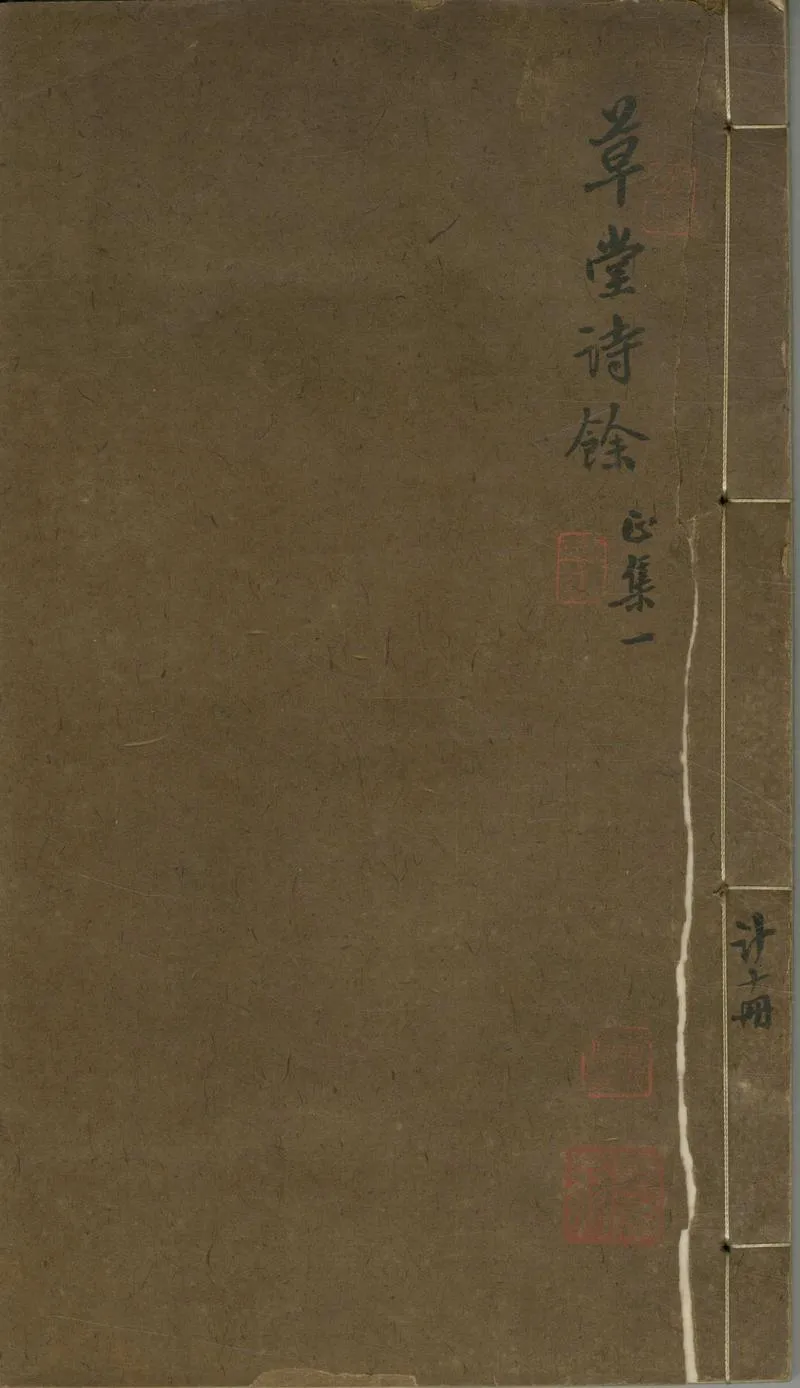 草堂诗餘
正集一
计十册